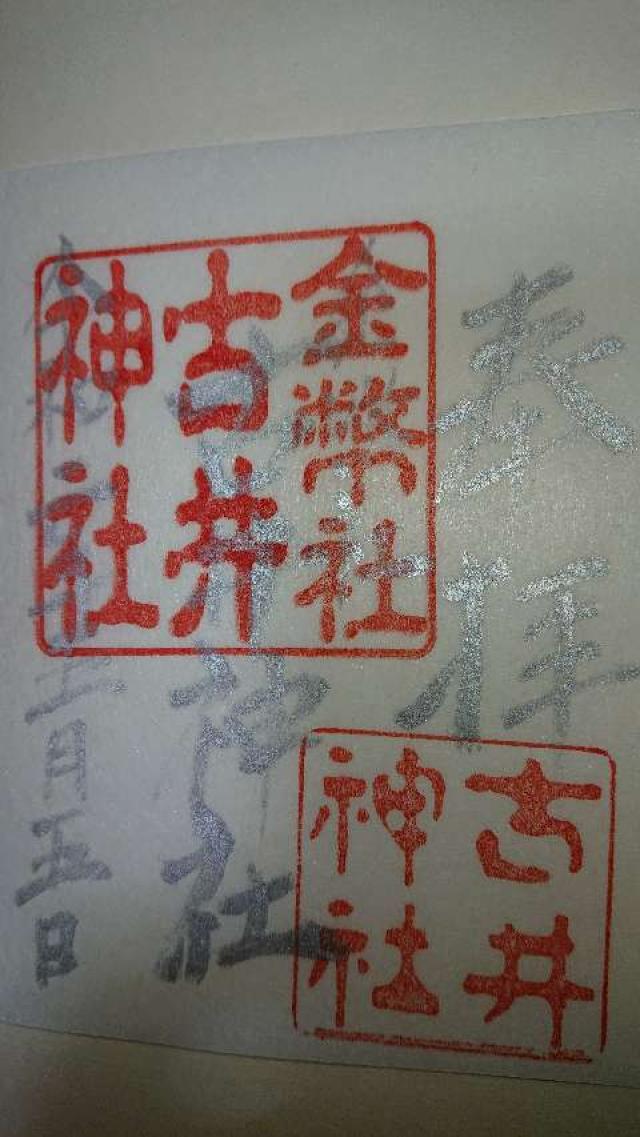 奉拝
金幣社
古井
神社
古井神社
月五日
古井
神社